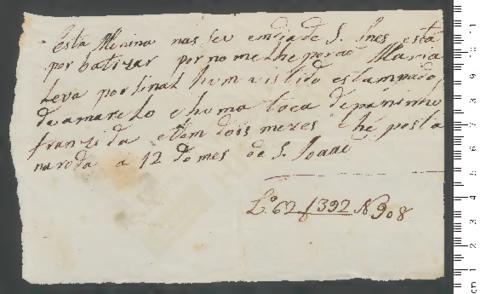 esta Menina nasseu em dia de S. Ines está
por batizar por nome lhe porão Maria
Leva por sinal hum vistido estampado
de amarelo e huma toca de paninho
franzida e tem dois mezes he posta
na roda a 12 do mes de S. Joaõ
L.º 62 f 392 N 908